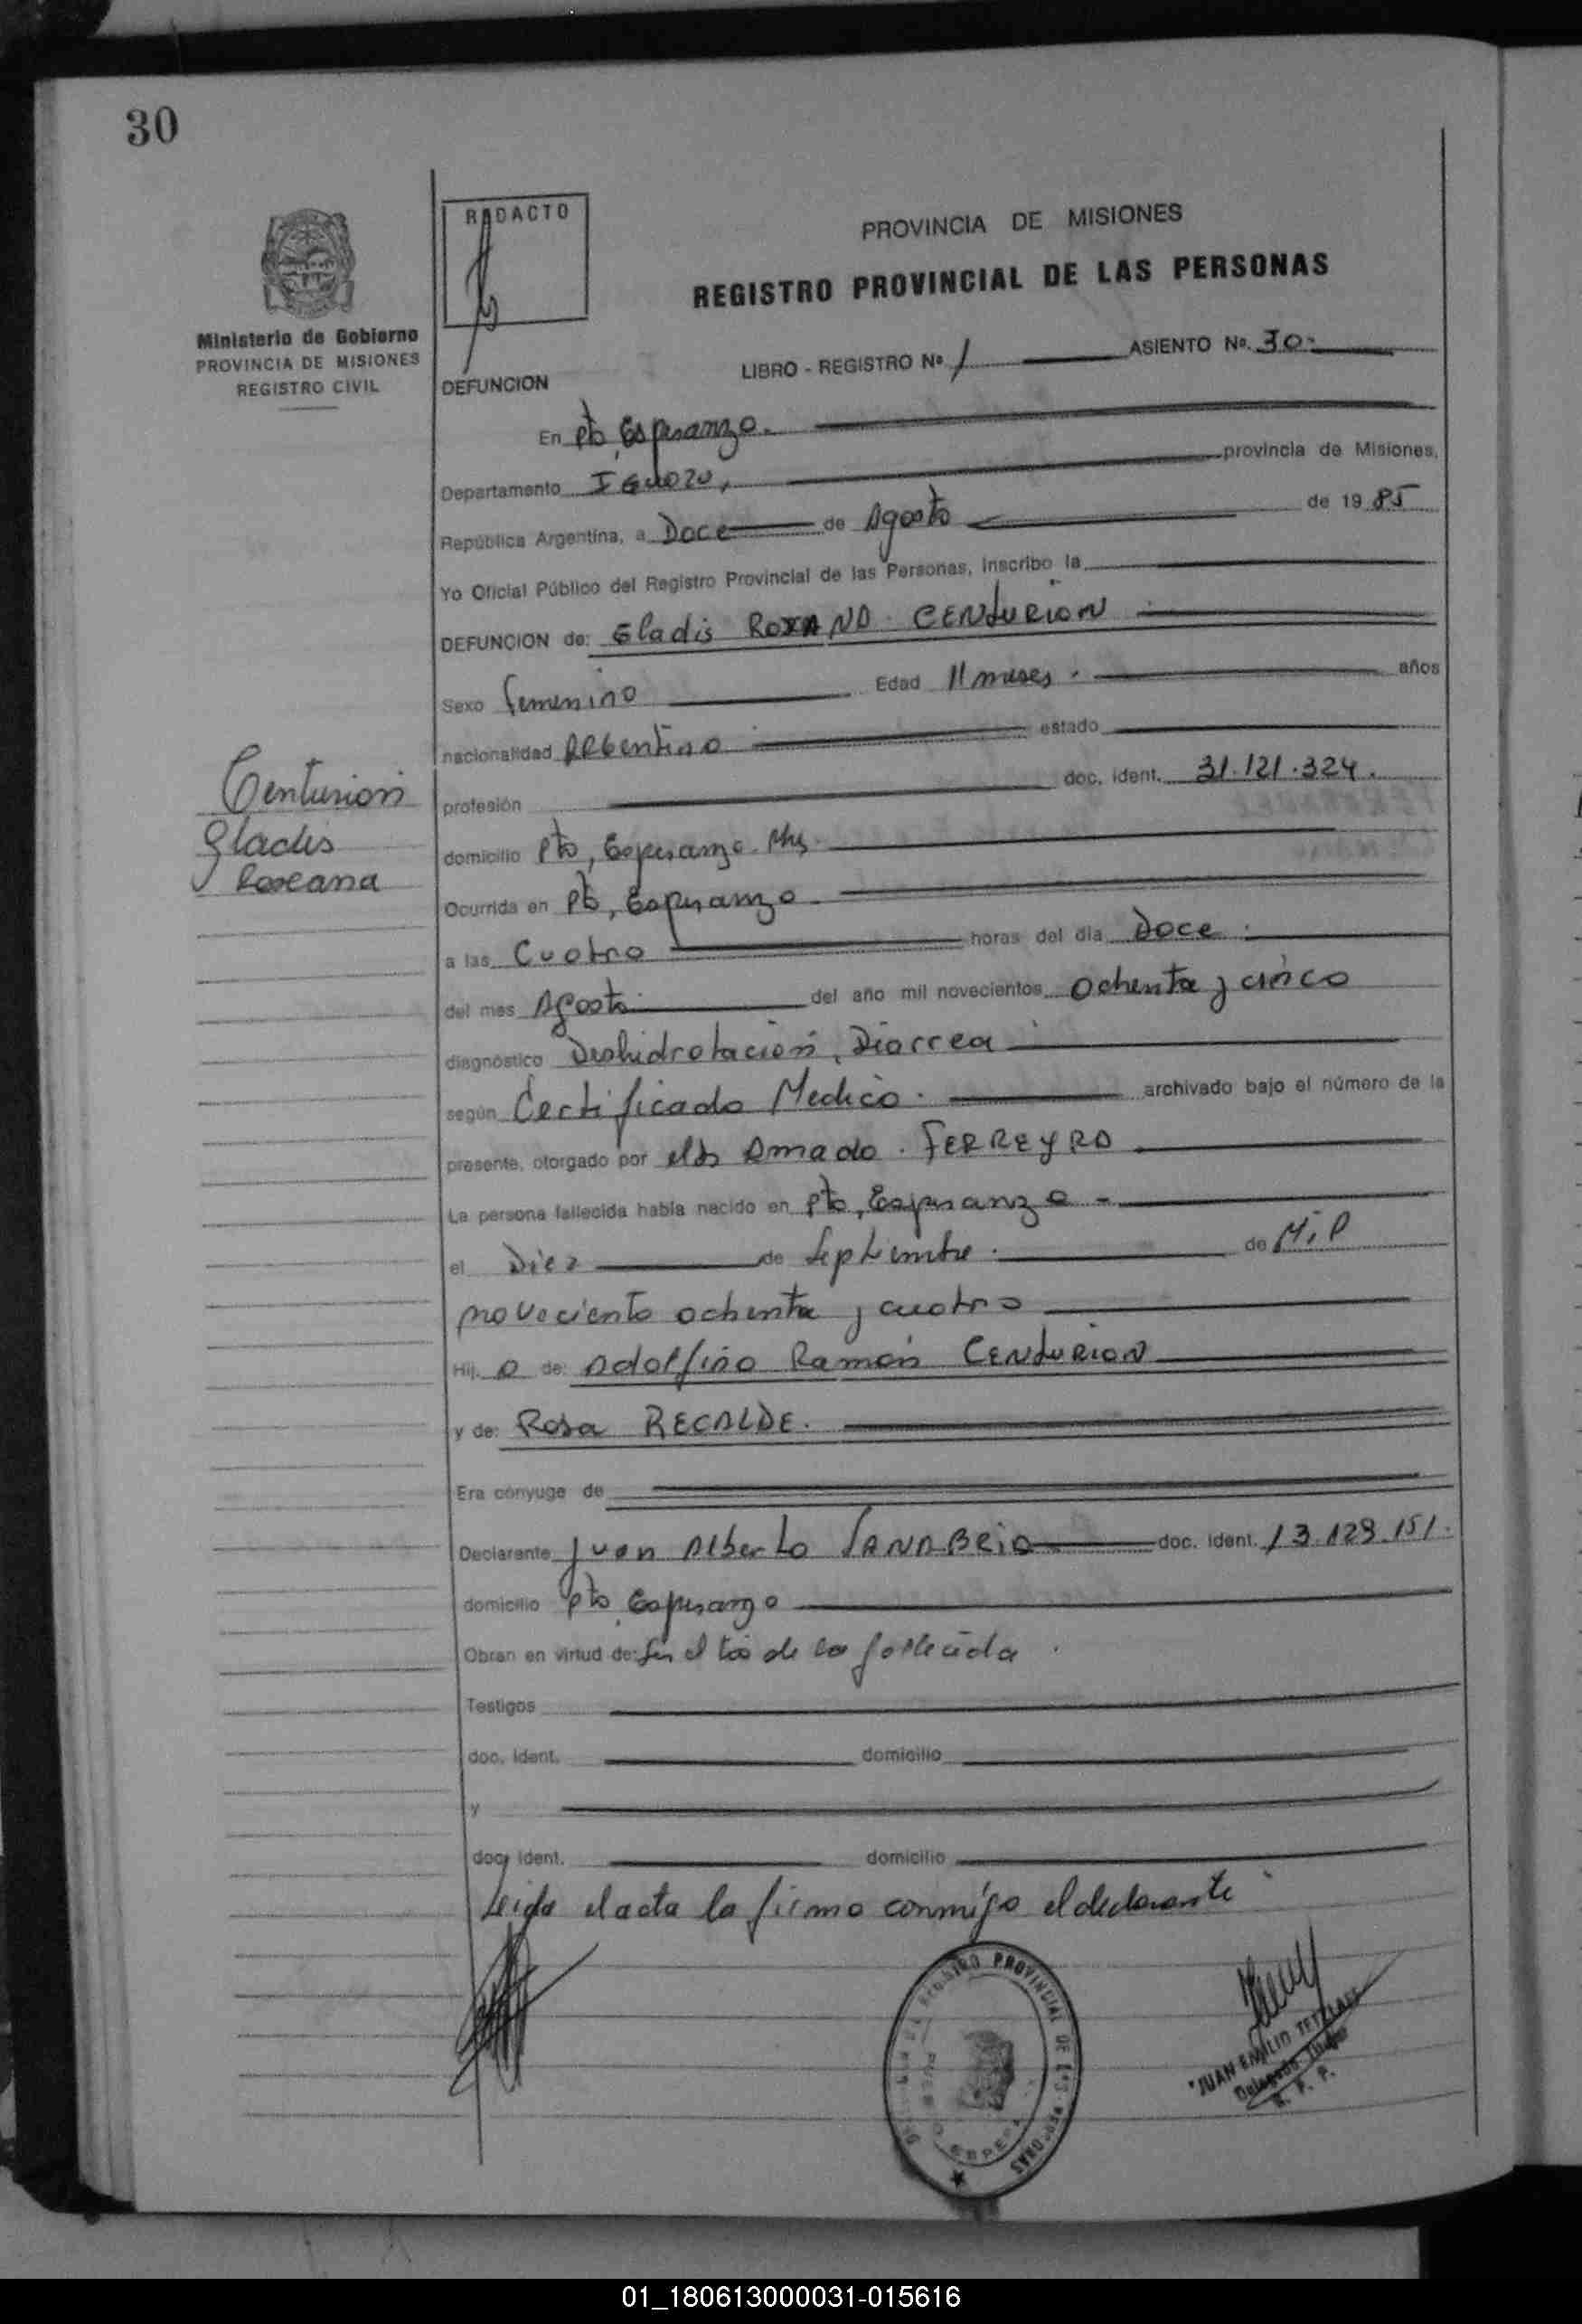 30
REDACTO
PROVINCIA DE MISIONES
REGISTRO PROVINCIAL DE LAS PERSONAS
Ministerio de Gobierno
PROVINCIA DE MISIONES
REGISTRO CIVIL
LIBRO - REGISTRO Nº 1 ASIENTO Nº. 30
DEFUNCION
En Pto, Esperanza.
Departamento IGUAZU, provincia de Misiones,
República Argentina, a Doce de Agosto de 1985
Yo Oficial Público del Registro Provincial de las Personas, inscribo la
DEFUNCION de: Gladis ROXANA CENTURION
Sexo femenino Edad 11 meses. años
nacionalidad ARGentina estado
profesión doc. ident. 31.121.324.
Centurion
Gladis
Roxana
domicilio Pto, Esperanza. Mns.
Ocurrida en Pto, Esperanza.
a las Cuatro horas del día Doce.
del mes Agosto del año mil novecientos ochenta y cinco
diagnóstico Deshidratación, Diarrea
según Certificado Medico. archivado bajo el número de la
presente, otorgado por el Dr Amado. FERREYRA
La persona fallecida había nacido en Pto, Esperanza -
el Diez de Septiembre. de Mil
noveciento ochenta y cuatro
Hij. a de: Adolfino Ramón CENTURION
y de: Rosa RECALDE.
Era cónyuge de
Declarante Juan Alberto SANABRIA doc. ident. 13.129.151.
domicilio Pto, Esperanza
Obran en virtud de: Ser el tio de la fallecida.
Testigos
doc. ident. domicilio
y
doc. ident. domicilio
Leida el acta la firma conmigo el declarante
REGISTRO PROVINCIAL DE LAS PERSONAS
JUAN EMILIO TETZLAFF
Delegado Titular
R. P. P.
01_180613000031-015616